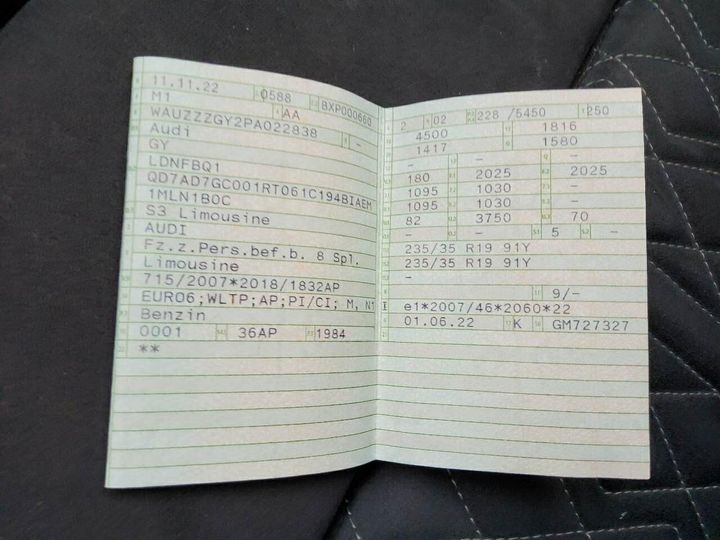 11.11.22 0588 BXP000660
M1 AA
WAUZZZGY2PA022838 -
Audi
GY
LDNFBQ1
QD7AD7GC001RT061C194BIAEM
1MLN1B0C
S3 Limousine
AUDI
Fz.z.Pers.bef.b. 8 Spl.
Limousine
715/2007*2018/1832AP
EURO6;WLTP;AP;PI/CI; M, N1 I
Benzin
0001 36AP 1984
**
2 02 228 /5450 250
4500 1816
1417 1580
- - -
180 2025 2025
1095 1030 -
1095 1030 -
82 3750 70
- - 5 -
235/35 R19 91Y
235/35 R19 91Y
-
9/-
e1*2007/46*2060*22
01.06.22 K GM727327